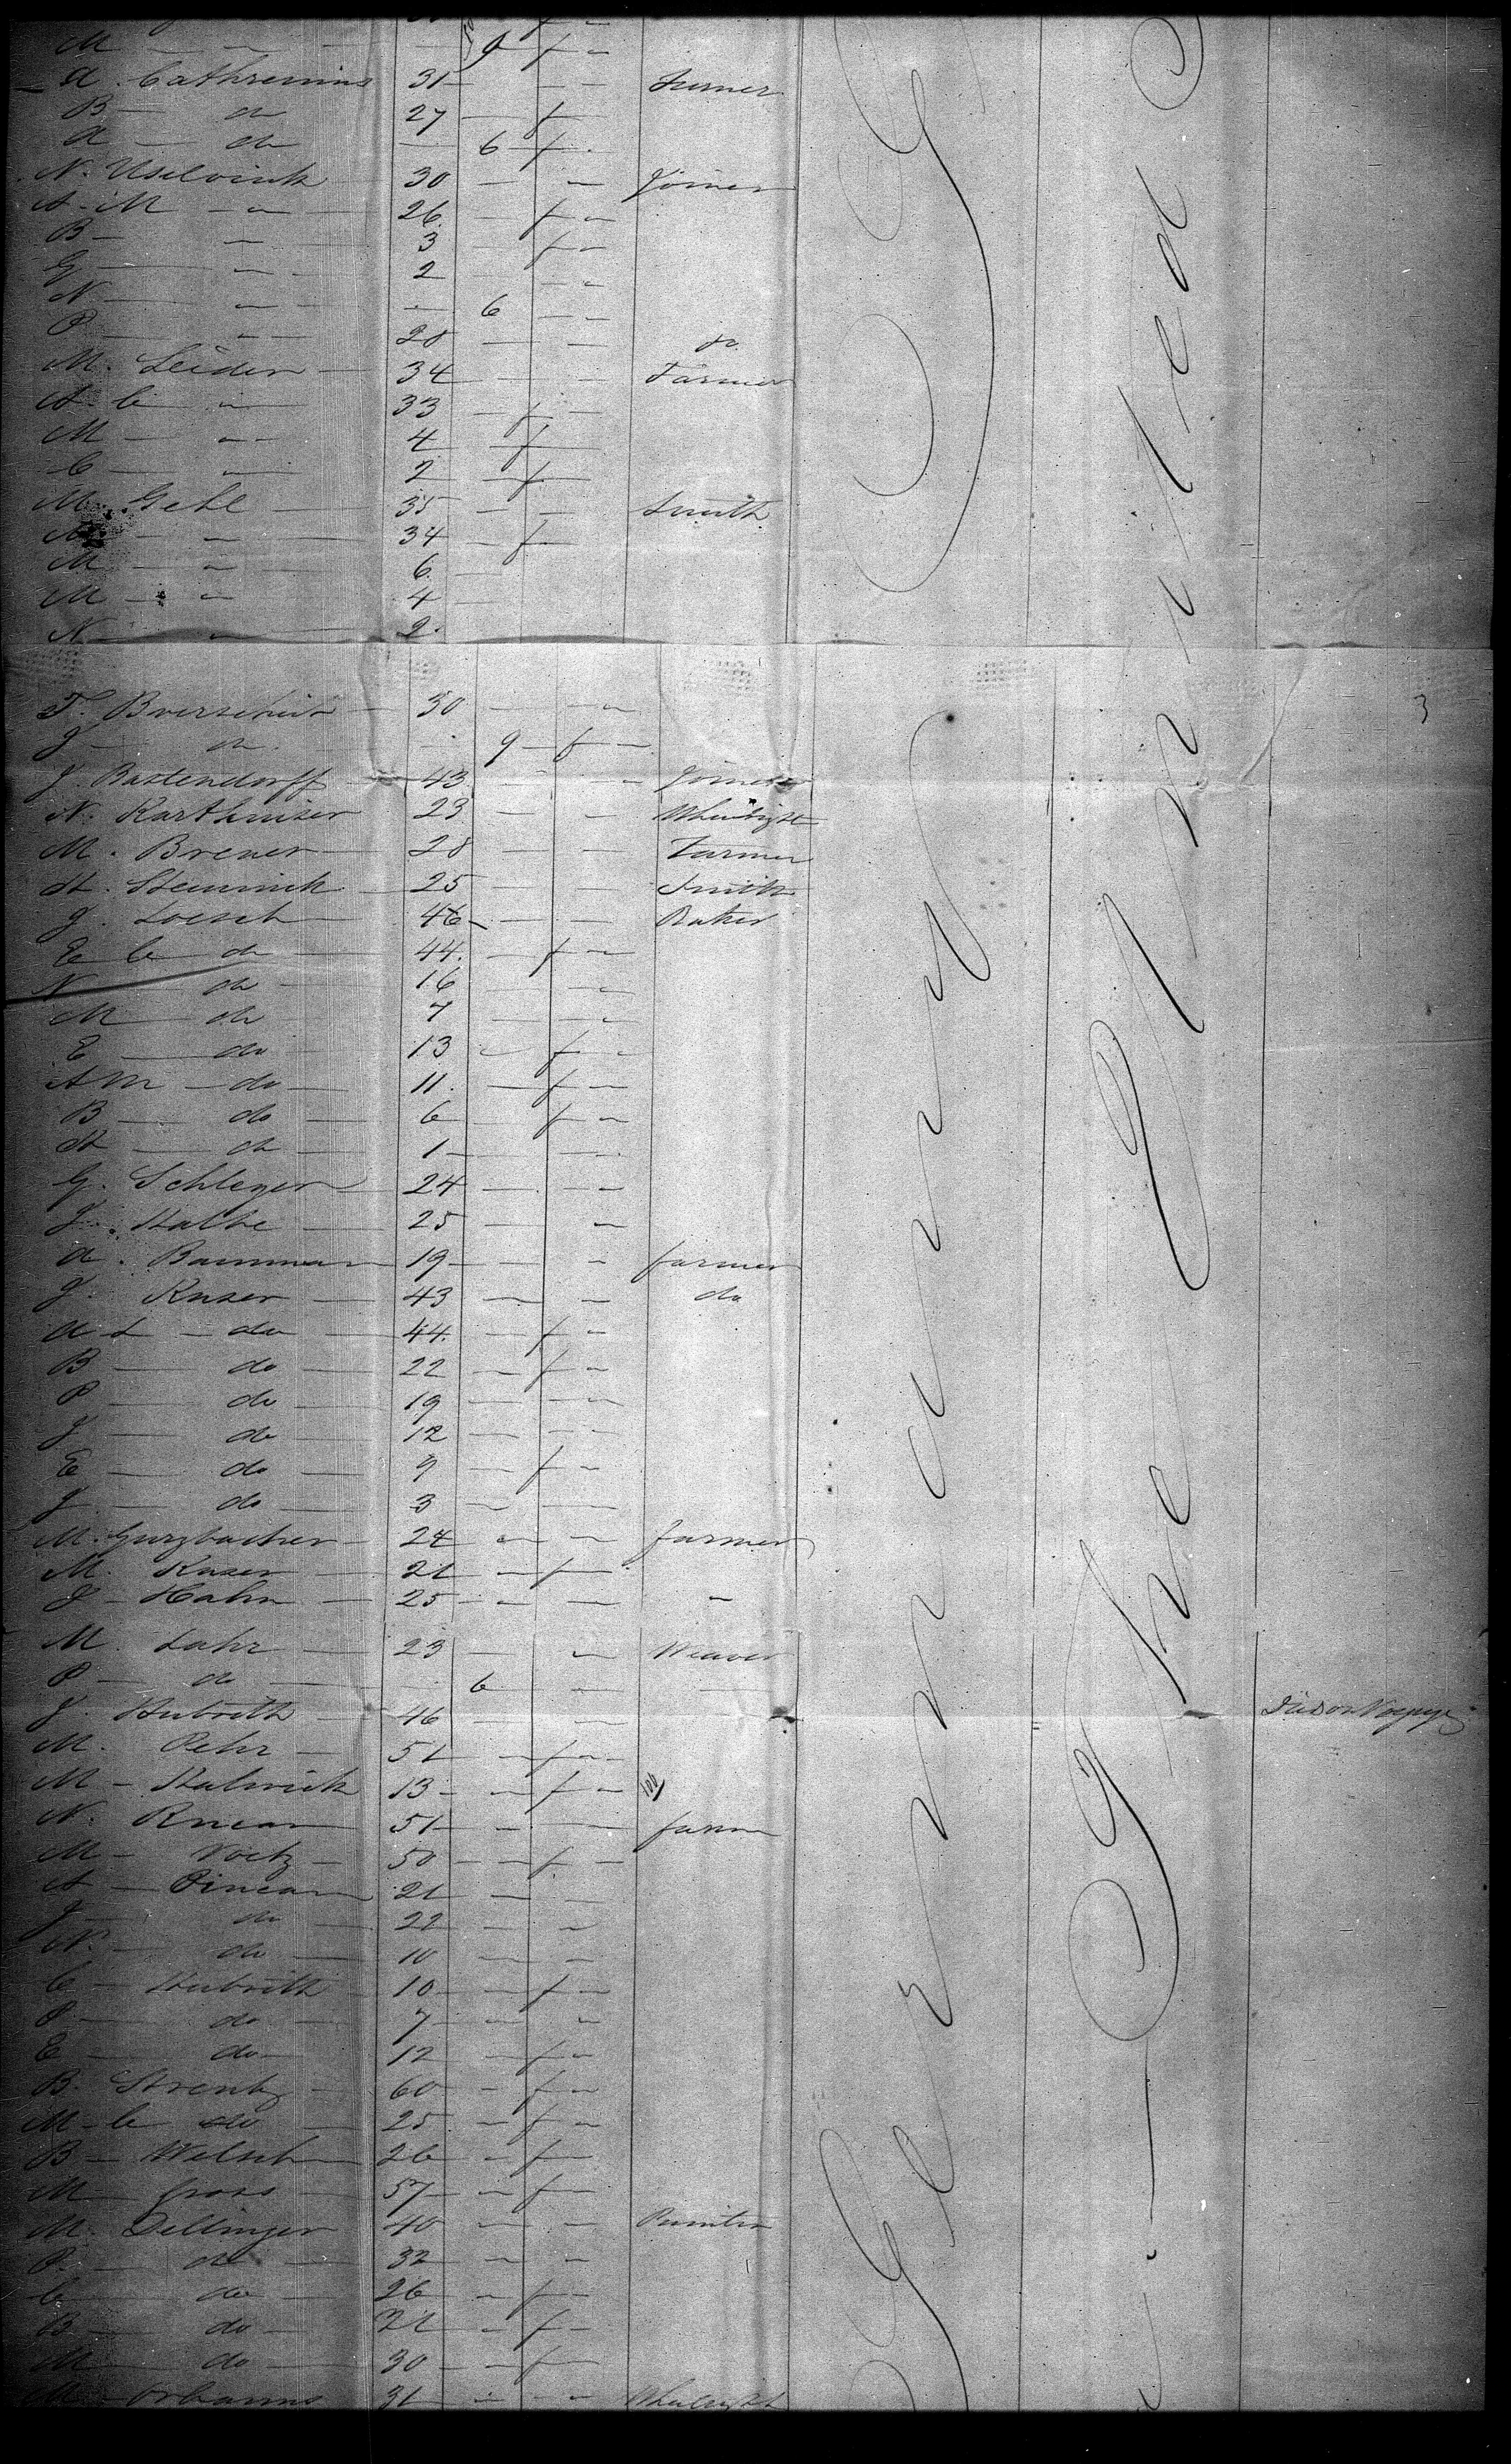 M — " — 9 f "
A. Cathrenins 31 — — Turner
B — do 27 — f —
A — do — 6 f
N. Uselvink 30 — " Joiner
A. M — " 26 — f "
B — " 3 — f "
G — " 2 — —
N — " — 6 — —
P — " 28 — — do
M. Leider 34 — — Farmer
A. C " 33 — f —
M — " 4 — f —
C — " 2 — f —
M. Gehl 35 — — Smith
— " 34 — f —
M — " 6 —
M — " 4 —
N — " 2
T. Boerscheid 30 — — "
J — do — 9 f —
J Bastendorff 43 — — Joiner
N. Karthuiser 23 — — Wheelright
M. Brener 28 — — Farmer
H. Steinmick 25 — — Smith
J. Loesch 46 — — Baker
E C do 44 — f "
N — do 16 — —
M — do 7 — —
E — do 13 — f —
A M — do 11 — f —
B — do 6 — f —
H — do 1 — —
G. Schleger 24 — —
J. Kalbe 25 — "
A. Bamman 19 — " farmer
J. Knser 43 — — do
A L — do 44 — f "
B — do 22 — f "
P — do 19 — —
J — do 12 — —
E — do 9 — f "
J — do 3 — —
M. Gurzbacher 24 " — farmer
M. Knser 21 — f —
J — Hahn 25 — — "
M. Lahr 23 — " Weaver
P — do — 6 — —
J. Hubrith 46 — — Died on Voyage
M. Pehr 51 — f —
M — Hubrith 13 — f — 100
N. Pinean 51 — — farm
M — Voetz 50 — f —
A — Pinean 21 — —
J — do 22 — "
N. — do 10 — "
C — Hubrith 10 — f "
P — do 7 — "
E — do 12 — f "
B. Strentz 60 — f "
M — C do 25 — f "
B — Welsch 26 — f
M — Gross 57 — f "
M. Dellinger 40 — — Painter
P. — do 32 — —
C — do 26 — f —
B — do 21 — f —
M — do 30 — f —
M — Orbanns 31 — " Wheelright
Germany
The United
3